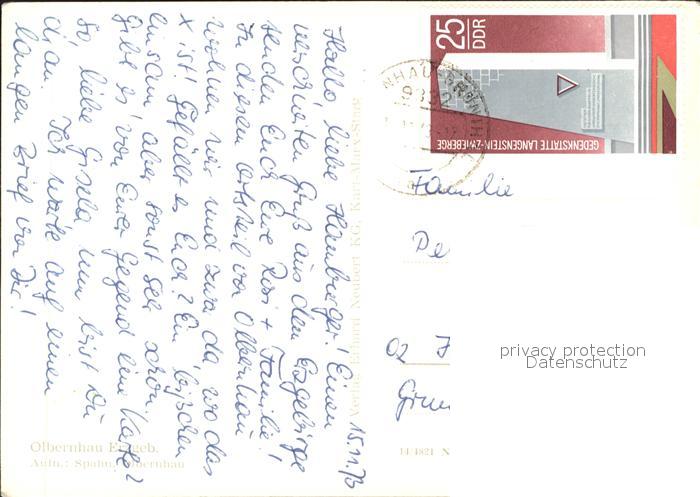 15.11.73
Hallo liebe Hamburger! Einen
verschneiten Gruß aus dem Erzgebirge
senden Euch Eure Rosi + Familie!
In diesem Ortsteil von Olbernhau
wohnen wir und zwar da, wo das
x ist! Gefällt es Euch? Ein bißchen
einsam aber sonst sehr schön.
Gibt es von Eurer Gegend eine Karte?
So, liebe Gisela nun bist Du
dran. Ich warte auf einen
langen Brief von Dir!
25
DDR
GEDENKSTÄTTE LANGENSTEIN-ZWIEBERGE
Familie
Verlag Erhard Neubert KG, Karl-Marx-Stadt
privacy protection
Datenschutz
Olbernhau Erzgeb.
Aufn.: Spahn, Olbernhau
14 4821 N